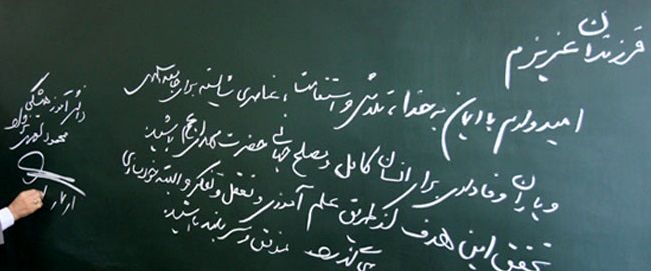 فرزندان عزیزم
امیدوارم با ایمان به خدا، تلاش و استقامت، عناصری شایسته برای جامعه
و یاران وفاداری برای انسان کامل و مصلح جهانی حضرت مهدی (عج) باشید.
تحقق این هدف از طریق علم آموزی و تعقل و تفکر و البته خودسازی
می‌گذرد. موفق و سربلند باشید.
دانش آموز همیشگی
محمود احمدی نژاد